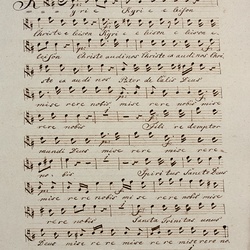 e e Kyri e e leison
Christe e leison Kyri e e leison e leison e
leison Christe audi nos Christe ex audi nos Christe
ex audi nos Pater de Celis Deus
mise rere nobis mise rere nobis mise
rere nobis Fili redemptor
mundi Deus mise rere mise rere no
bis Spiritus Sancte Deus
mise rere nobis mise rere nobis mise
rere nobis Sancta Trinitas unus
Deus mise rere mise rere mise rere nobis